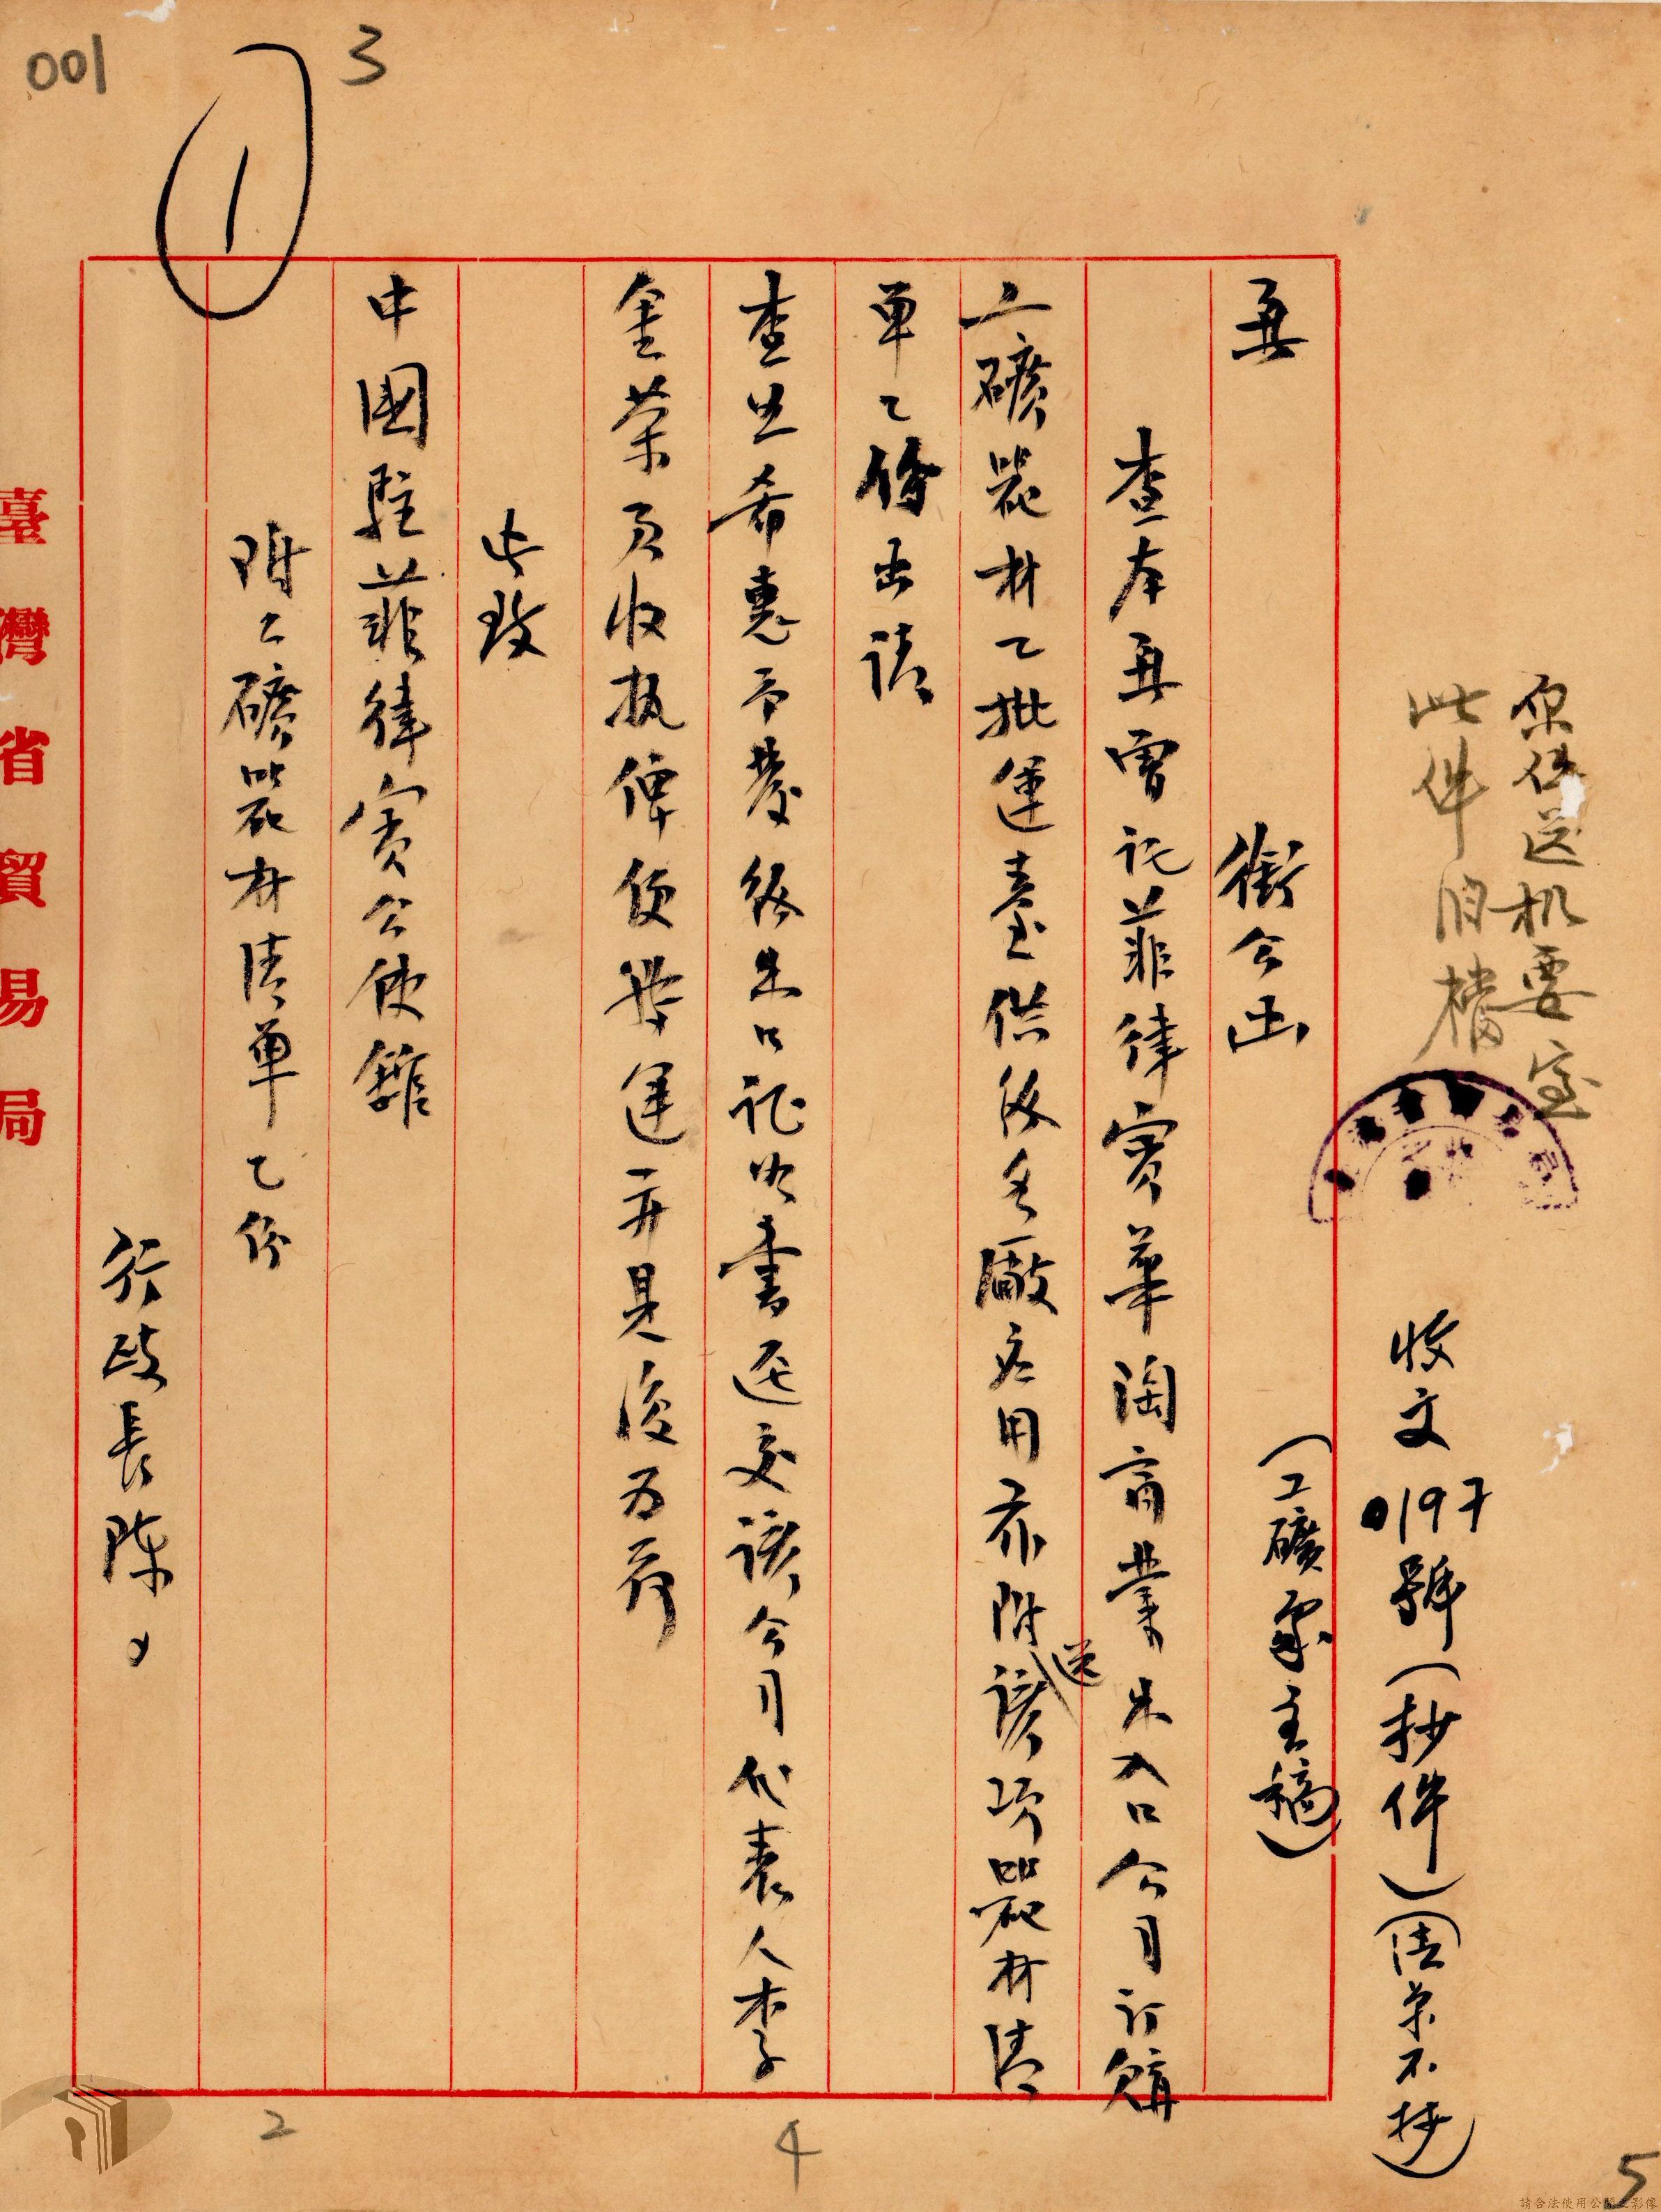 001
3
1
原件送机要室
此件歸檔
收文0197號(抄件)(清單不抄)
銜公函
(工礦處主稿)
查本署曾託菲律賓華僑商業出入口公司訂購
工礦器材乙批運臺供給各廠应用茲附送該項器材清
單乙份函請
查照希惠予發給出口証明書逕交該公司代表人李
金榮君收執俾便啓運并見復为荷
此致
中國駐菲律賓公使館
附工礦器材清單乙份
行政長陳
臺灣省貿易局
2
4
5
請合法使用公開之影像